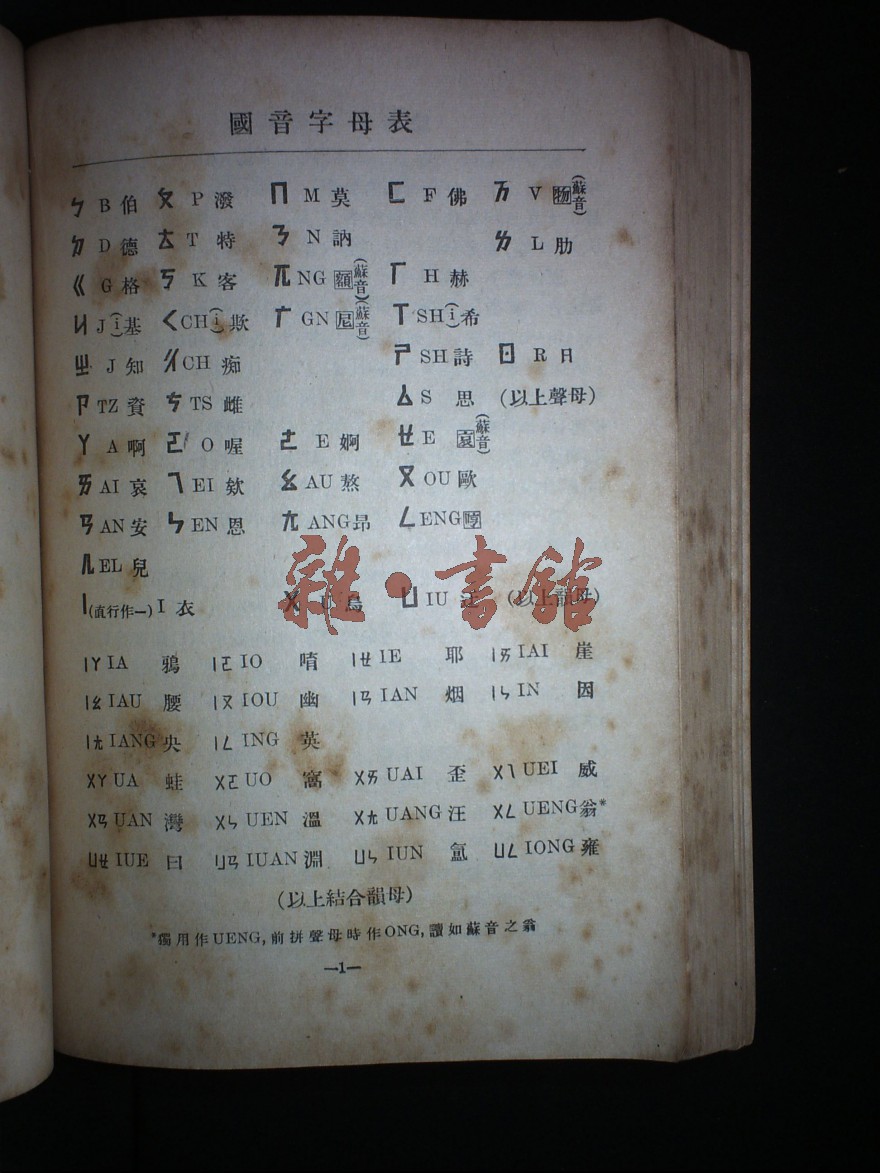 國音字母表
ㄅ B 伯 ㄆ P 潑 ㄇ M 莫 ㄈ F 佛 ㄪ V 物(蘇音)
ㄉ D 德 ㄊ T 特 ㄋ N 訥 ㄌ L 肋
ㄍ G 格 ㄎ K 客 ㄫ NG 額(蘇音) ㄏ H 赫
ㄐ J(i)基 ㄑ CH(i)欺 ㄬ GN 尼(蘇音) ㄒ SH(i)希
ㄓ J 知 ㄔ CH 痴 ㄕ SH 詩 ㄖ R 日
ㄗ TZ 資 ㄘ TS 雌 ㄙ S 思 (以上聲母)
ㄚ A 啊 ㄛ O 喔 ㄜ E 婀 ㄝ E (蘇音)
ㄞ AI 哀 ㄟ EI 欸 ㄠ AU 熬 ㄡ OU 歐
ㄢ AN 安 ㄣ EN 恩 ㄤ ANG 昂 ㄥ ENG
ㄦ EL 兒
ㄧ(直行作一) I 衣 ㄨ U 烏 ㄩ IU 迂 (以上韻母)
ㄧㄚ IA 鴉 ㄧㄛ IO 唷 ㄧㄝ IE 耶 ㄧㄞ IAI 崖
ㄧㄠ IAU 腰 ㄧㄡ IOU 幽 ㄧㄢ IAN 烟 ㄧㄣ IN 因
ㄧㄤ IANG 央 ㄧㄥ ING 英
ㄨㄚ UA 蛙 ㄨㄛ UO 窩 ㄨㄞ UAI 歪 ㄨㄟ UEI 威
ㄨㄢ UAN 灣 ㄨㄣ UEN 溫 ㄨㄤ UANG 汪 ㄨㄥ UENG 翁*
ㄩㄝ IUE 曰 ㄩㄢ IUAN 淵 ㄩㄣ IUN 氳 ㄩㄥ IONG 雍
(以上結合韻母)
*獨用作UENG,前拼聲母時作ONG,讀如蘇音之翁
—1—
雜·書館